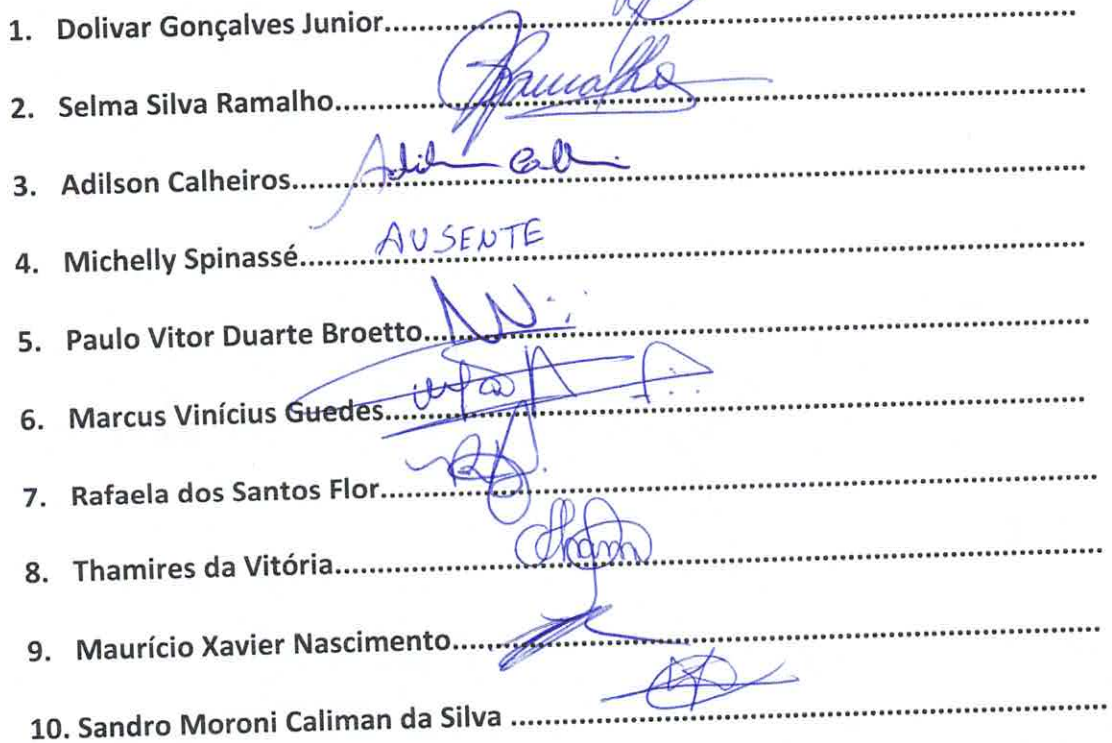 1. Dolivar Gonçalves Junior
2. Selma Silva Ramalho Ramalho
3. Adilson Calheiros
4. Michelly Spinassé AUSENTE
5. Paulo Vitor Duarte Broetto
6. Marcus Vinícius Guedes
7. Rafaela dos Santos Flor
8. Thamires da Vitória
9. Maurício Xavier Nascimento
10. Sandro Moroni Caliman da Silva